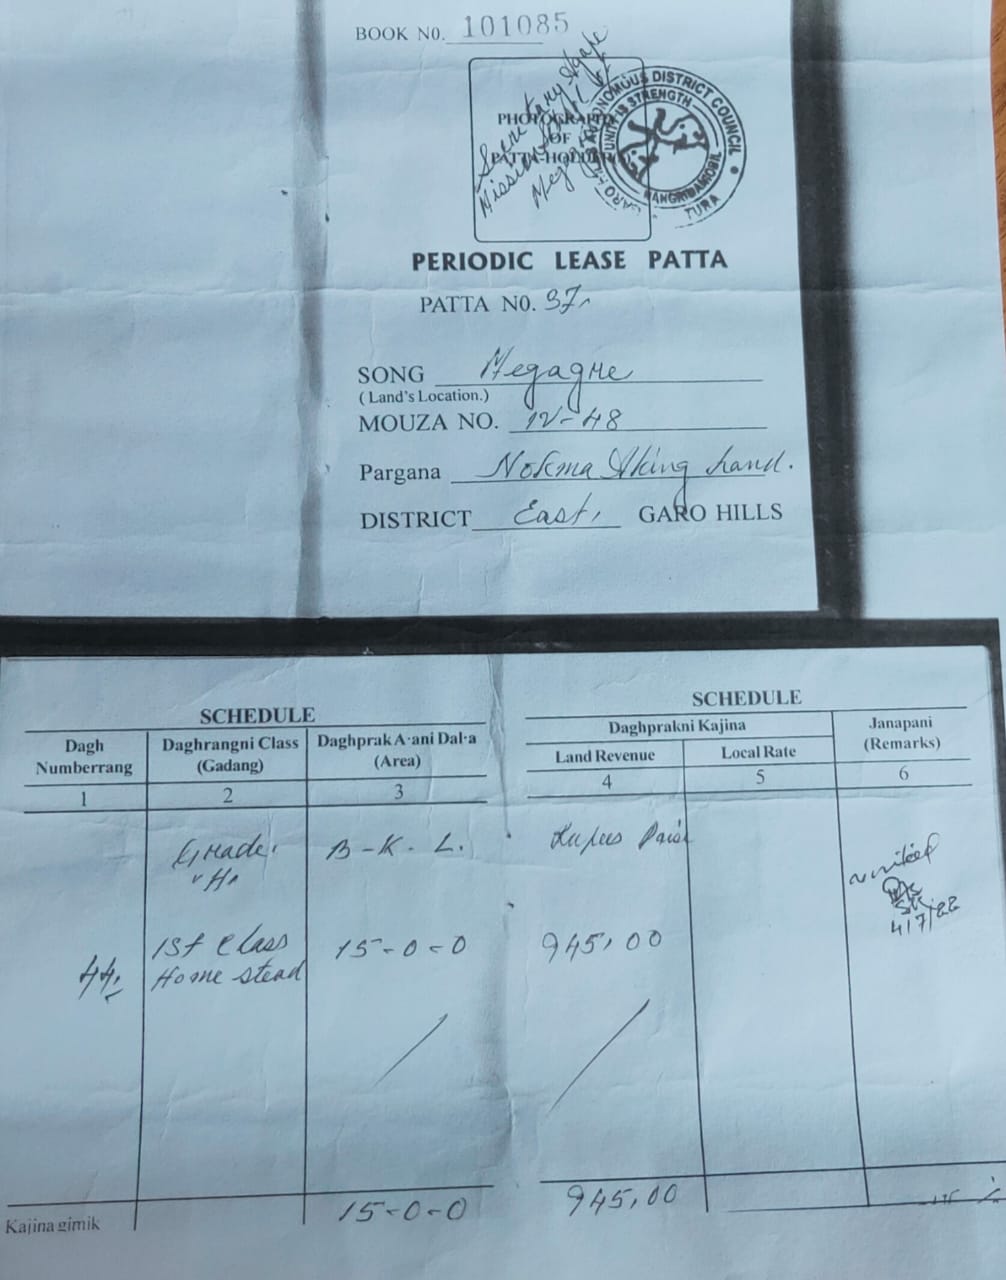 BOOK NO. 101085
Secretary Agape
Mission School
Megagre
PHOTOGRAPH
OF
PATTA-HOLDER
GARO HILLS AUTONOMOUS DISTRICT COUNCIL
UNITY IS STRENGTH
TURA
PERIODIC LEASE PATTA
PATTA NO. 37,
SONG Megagre
(Land's Location.)
MOUZA NO. IV-48
Pargana Nokma Aking Land.
DISTRICT East, GARO HILLS
SCHEDULE SCHEDULE
Dagh Numberrang Daghrangni Class (Gadang) Daghprak A·ani Dal·a (Area) Daghprakni Kajina Janapani (Remarks)
Land Revenue Local Rate
1 2 3 4 5 6
Grade, B-K-L. Rupees Paisa
"H"
4/7/22
1st Class 15-0-0 945,00
44, Home stead
Kajina gimik 15-0-0 945,00